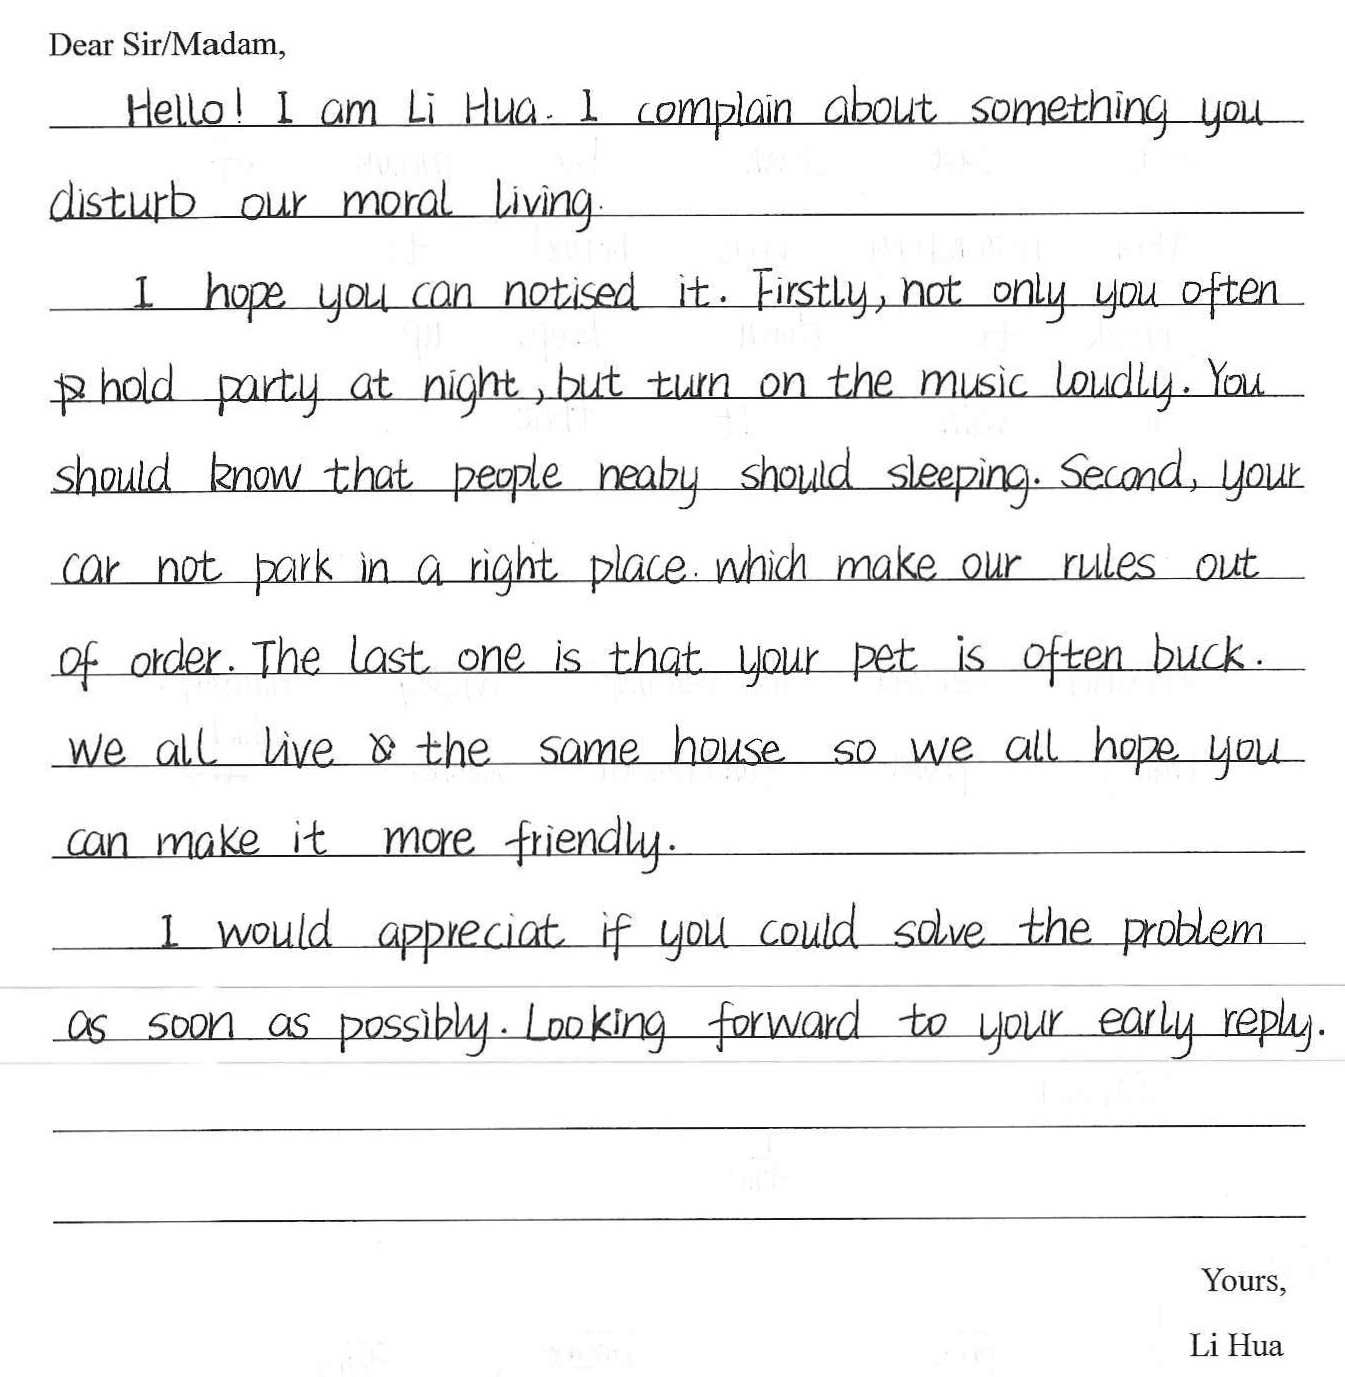 Dear Sir/Madam,
Hello! I am Li Hua. I complain about something you
disturb our moral living.
I hope you can notised it. Firstly, not only you often
hold party at night, but turn on the music loudly. You
should know that people neaby should sleeping. Second, your
car not park in a right place. which make our rules out
of order. The last one is that your pet is often buck.
We all live the same house so we all hope you
can make it more friendly.
I would appreciat if you could solve the problem
as soon as possibly. Looking forward to your early reply.
Yours,
Li Hua